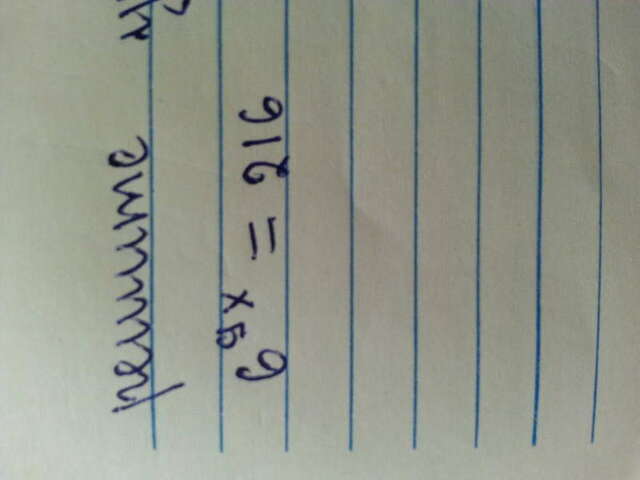 решите
6⁵ˣ = 216